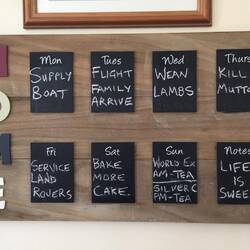 Mon
SUPPLY
BOAT
Tues
FLIGHT
FAMILY
ARRIVE
Wed
WEAN
LAMBS
Thurs
KILL
MUTTO
Fri
SERVICE
LAND
ROVERS
Sat
BAKE
MORE
CAKE.
Sun
WORLD EX
AM-TEA
SILVER C
PM-TEA
Notes
LIFE
IS
SWEE
M
E